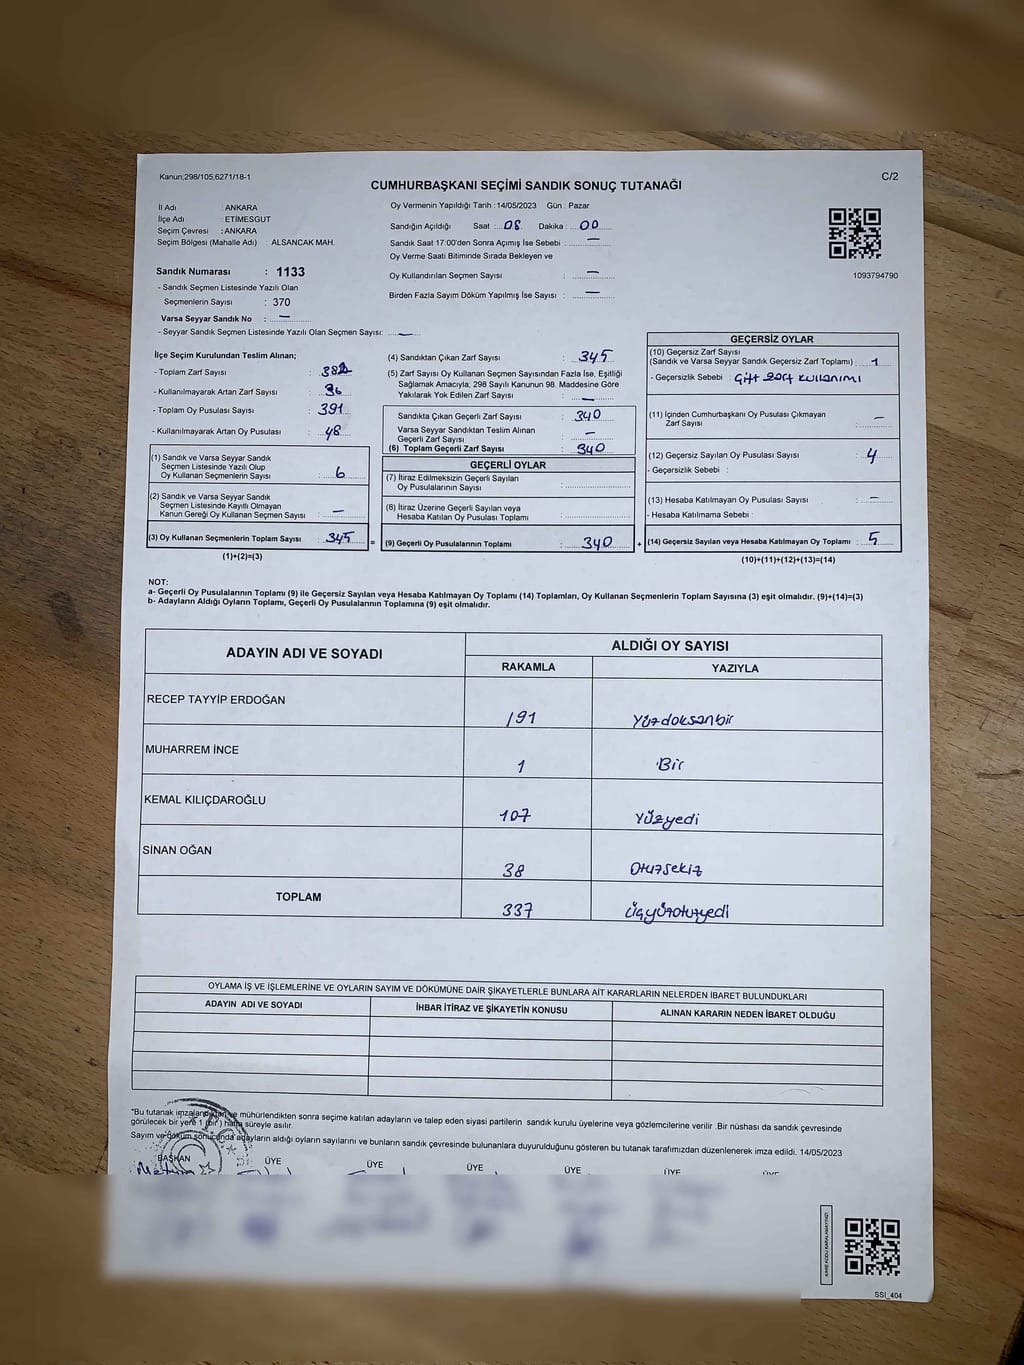 Kanun;298/105,6271/18-1
C/2
CUMHURBAŞKANI SEÇİMİ SANDIK SONUÇ TUTANAĞI
İl Adı : ANKARA
İlçe Adı : ETİMESGUT
Seçim Çevresi : ANKARA
Seçim Bölgesi (Mahalle Adı) : ALSANCAK MAH.
Oy Vermenin Yapıldığı Tarih :14/05/2023 Gün : Pazar
Sandığın Açıldığı Saat : 08 Dakika : 00
Sandık Saat 17:00'den Sonra Açımış İse Sebebi : —
Oy Verme Saati Bitiminde Sırada Bekleyen ve
Oy Kullandırılan Seçmen Sayısı : —
Birden Fazla Sayım Döküm Yapılmış İse Sayısı : —
1093794790
Sandık Numarası : 1133
- Sandık Seçmen Listesinde Yazılı Olan
Seçmenlerin Sayısı : 370
Varsa Seyyar Sandık No : —
- Seyyar Sandık Seçmen Listesinde Yazılı Olan Seçmen Sayısı: —
İlçe Seçim Kurulundan Teslim Alınan;
- Toplam Zarf Sayısı :
- Kullanılmayarak Artan Zarf Sayısı : 36
- Toplam Oy Pusulası Sayısı : 391
- Kullanılmayarak Artan Oy Pusulası : 48
(1) Sandık ve Varsa Seyyar Sandık
Seçmen Listesinde Yazılı Olup
Oy Kullanan Seçmenlerin Sayısı : 6
(2) Sandık ve Varsa Seyyar Sandık
Seçmen Listesinde Kayıtlı Olmayan
Kanun Gereği Oy Kullanan Seçmen Sayısı : —
(3) Oy Kullanan Seçmenlerin Toplam Sayısı : 345
(1)+(2)=(3)
(4) Sandıktan Çıkan Zarf Sayısı : 345
(5) Zarf Sayısı Oy Kullanan Seçmen Sayısından Fazla İse, Eşitliği
Sağlamak Amacıyla; 298 Sayılı Kanunun 98. Maddesine Göre
Yakılarak Yok Edilen Zarf Sayısı : —
Sandıkta Çıkan Geçerli Zarf Sayısı : 340
Varsa Seyyar Sandıktan Teslim Alınan
Geçerli Zarf Sayısı : —
(6) Toplam Geçerli Zarf Sayısı : 340
GEÇERLİ OYLAR
(7) İtiraz Edilmeksizin Geçerli Sayılan
Oy Pusulalarının Sayısı :
(8) İtiraz Üzerine Geçerli Sayılan veya
Hesaba Katılan Oy Pusulası Toplamı :
= (9) Geçerli Oy Pusulalarının Toplamı : 340 +
GEÇERSİZ OYLAR
(10) Geçersiz Zarf Sayısı
(Sandık ve Varsa Seyyar Sandık Geçersiz Zarf Toplamı) : 1
- Geçersizlik Sebebi : Çift zarf kullanımı
(11) İçinden Cumhurbaşkanı Oy Pusulası Çıkmayan
Zarf Sayısı : —
(12) Geçersiz Sayılan Oy Pusulası Sayısı : 4
- Geçersizlik Sebebi :
(13) Hesaba Katılmayan Oy Pusulası Sayısı : —
- Hesaba Katılmama Sebebi :
(14) Geçersiz Sayılan veya Hesaba Katılmayan Oy Toplamı : 5
(10)+(11)+(12)+(13)=(14)
NOT:
a- Geçerli Oy Pusulalarının Toplamı (9) ile Geçersiz Sayılan veya Hesaba Katılmayan Oy Toplamı (14) Toplamları, Oy Kullanan Seçmenlerin Toplam Sayısına (3) eşit olmalıdır. (9)+(14)=(3)
b- Adayların Aldığı Oyların Toplamı, Geçerli Oy Pusulalarının Toplamına (9) eşit olmalıdır.
ADAYIN ADI VE SOYADI
ALDIĞI OY SAYISI
RAKAMLA YAZIYLA
RECEP TAYYİP ERDOĞAN 191 Yüzdoksanbir
MUHARREM İNCE 1 Bir
KEMAL KILIÇDAROĞLU 107 Yüzyedi
SİNAN OĞAN 38 Otuzsekiz
TOPLAM 337 Üçyüzotuzyedi
OYLAMA İŞ VE İŞLEMLERİNE VE OYLARIN SAYIM VE DÖKÜMÜNE DAİR ŞİKAYETLERLE BUNLARA AİT KARARLARIN NELERDEN İBARET BULUNDUKLARI
ADAYIN ADI VE SOYADI İHBAR İTİRAZ VE ŞİKAYETİN KONUSU ALINAN KARARIN NEDEN İBARET OLDUĞU
"Bu tutanak mühürlendikten sonra seçime katılan adayların ve talep eden siyasi partilerin sandık kurulu üyelerine veya gözlemcilerine verilir .Bir nüshası da sandık çevresinde
görülecek bir yere 1 (bir) hafta süreyle asılır.
Sayım ve döküm sonucunda adayların aldığı oyların sayılarını ve bunların sandık çevresinde bulunanlara duyurulduğunu gösteren bu tutanak tarafımızdan düzenlenerek imza edildi. 14/05/2023
BAŞKAN ÜYE ÜYE ÜYE ÜYE ÜYE ÜYE
KARE KODU KARALAMAYINIZ!
SSI_404